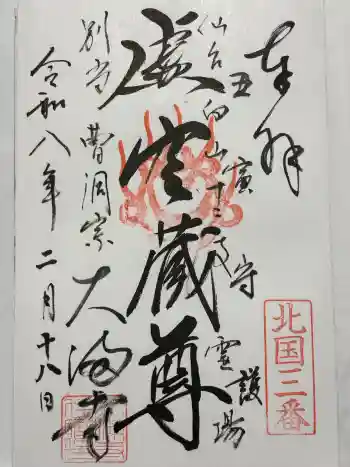 奉拝
丑寅守護
仙台向山十二支霊場
虚空蔵尊
別当 曹洞宗
大満寺
令和八年二月十八日
北国三番